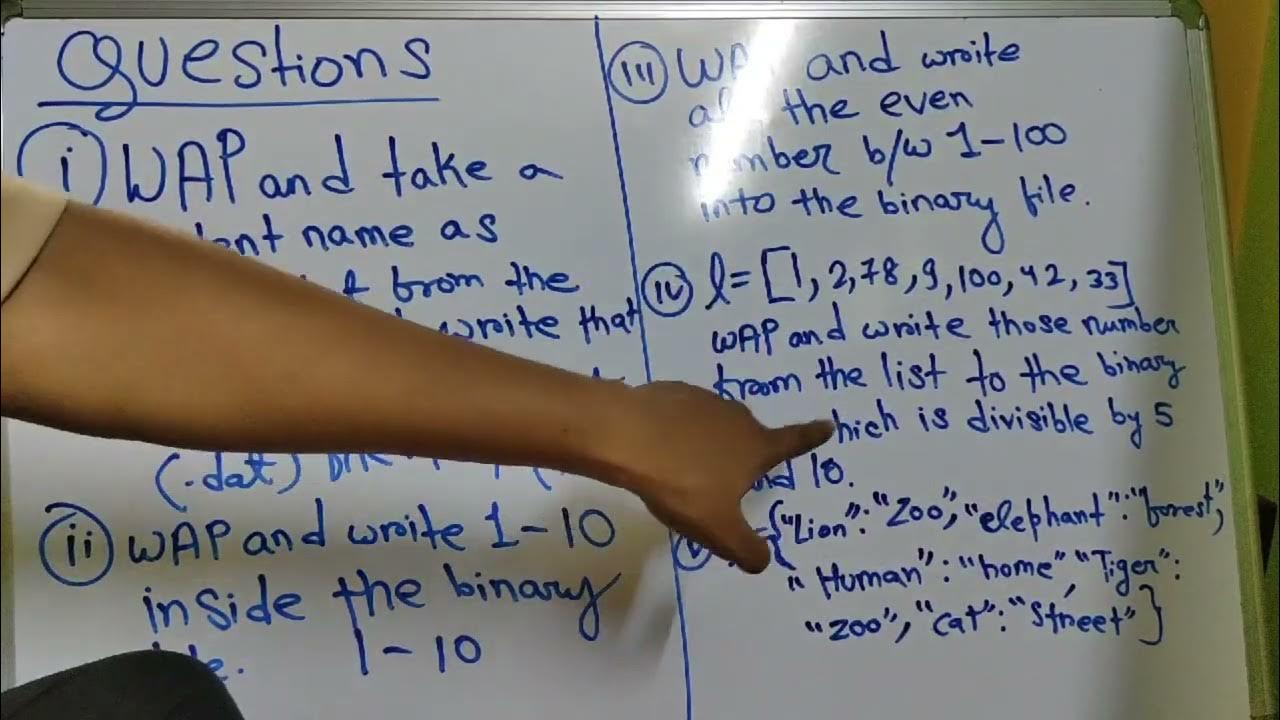 Questions
i) WAP and take a
name as
from the
write that
(.dat)
ii) WAP and wroite 1-10
inside the binary
1-10
iii) and wroite
the even
number b/w 1-100
into the binary file.
iv) l=[1, 2, 78, 9, 100, 42, 33]
WAP and wroite those number
from the list to the binary
which is divisible by 5
and 10.
={"Lion": "Zoo", "elephant": "forest",
"Human": "home", "Tiger":
"zoo", "cat": "Street"}